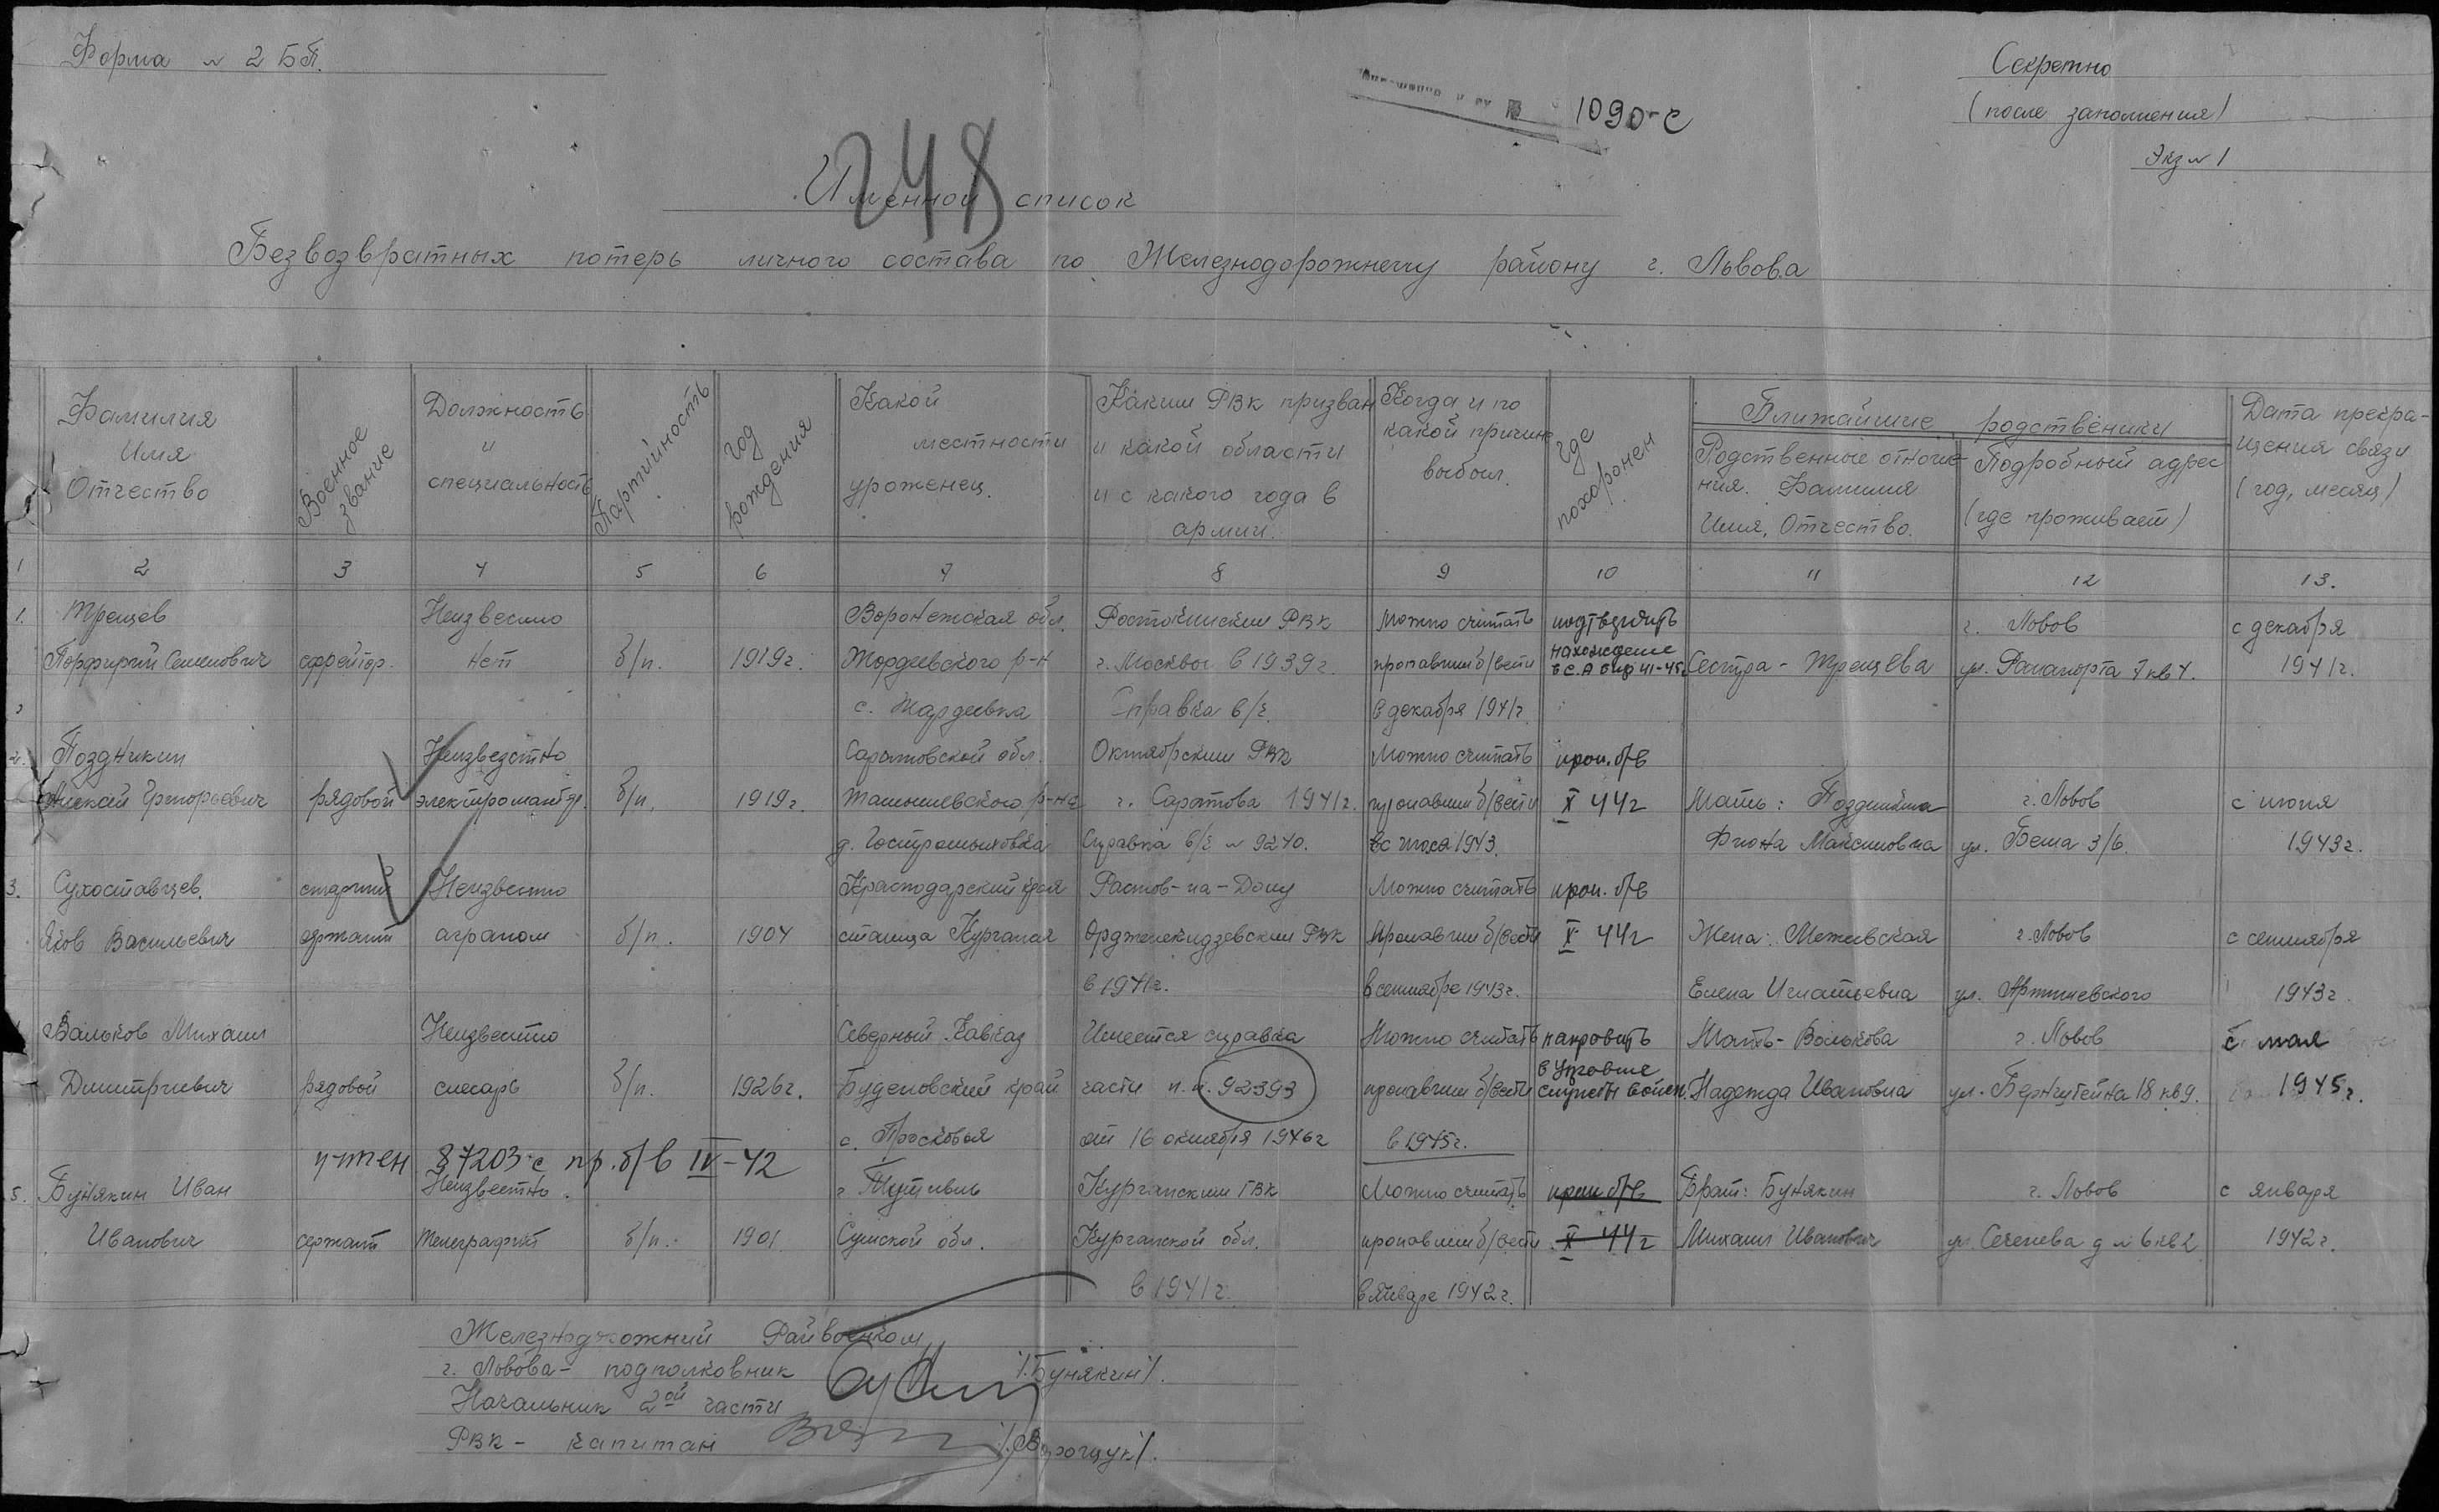 Форма № 2 БП.
Секретно
(после заполнения)
Экз № 1
1090-с
248
Именной список
Безвозвратных потерь личного состава по Железнодорожнему району г. Львова
Фамилия Имя Отчество
Военное звание
Должность и специальность
Партийность
год рождения
Какой местности уроженец.
Каким РВК призван и какой области и с какого года в армии.
Когда и по какой причине выбыл.
где похоронен
Ближайшие родственики
Родственные отноше-ния. Фамилия Имя, Отчество.
Подробный адрес (где проживает)
Дата прекра-щения связи (год, месяц)
1 2 3 4 5 6 7 8 9 10 11 12 13.
1. Трещев Неизвестно Воронежская обл. Ростокинским РВК Можно считать подтвердить г. Львов с декабря
Порфирий Семенович ефрейтор. нет б/п. 1919г. р-н г. Москвы в 1939г. пропавшим б/вести нахождение в С.А Сестра - Трещева ул. кв 4. 1941г.
с. Справка в/ч. в декабря 1941г
2. Поздникин Неизвестно Саратовской обл. Октябрским РВК Можно считать проп. б/в
Алексей Григорьевич рядовой б/п. 1919г. г. Саратова 1941г. пропавшим б/вести X 44г Мать: г. Львов с июля
д. Справка в/ч № 9240. с июля 1943. Максимовна ул. Бема 3/6. 1943г.
3. Сухоставцев. старший Неизвестно Краснодарский край Растов-на-Дону Можно считать проп. б/в
Яков Васильевич сержант агроном б/п. 1904 станица Курганая Орджоникидзевским РВК Пропавшим б/вести X 44г Жена: Межевская г. Львов с сентября
в 1941г. в сентябре 1943г. Елена Игнатьевна ул. 1943г.
Вальков Михаил Неизвестно Северный Кавказ Имеется справка Можно считать направить Мать - Валькова г. Львов с мая
Дмитриевич рядовой слесарь б/п. 1926г. Буденовский край части п.п. 92393 пропавшим б/вести в Надежда Ивановна ул. Бернштейна 18 кв 9. 1945г.
с. Прасковея от 16 октября 1946г в 1945г.
87203 с пр. б/в IV-42
5. Бунякин Иван Неизвестно. г Путивль Курганским ГВК Можно считать проп б/в Брат: Бунякин г. Львов с января
Иванович сержант Телеграфист б/п. 1901 Сумской обл. Курганской обл. пропавшим б/вести X 44г Михаил Иванович ул. Сеченева д № 6 кв 2 1942г.
в 1941г. в январе 1942г.
Железнодожний Райвоенком
г. Львова - подполковник /Бунякин/.
Начальник 2ой части
РВК - капитан